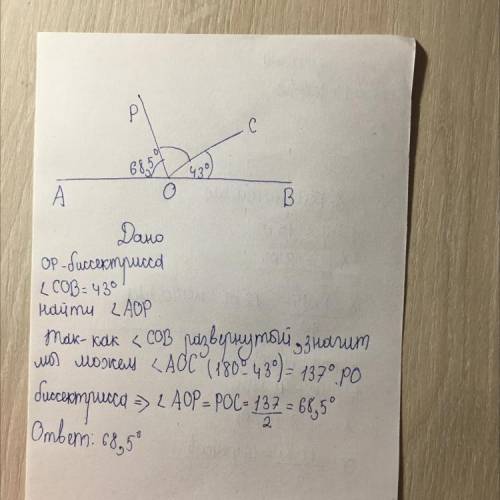 P
C
68,5°
43°
A
O
B
Дано
OP-биссектрисса
∠COB=43°
найти ∠AOP
так-как ∠COB развернутый, значит
мы можем ∠AOC (180°-43°)=137°. PO
биссектрисса ⇒ ∠AOP=POC=137/2=68,5°
Ответ: 68,5°